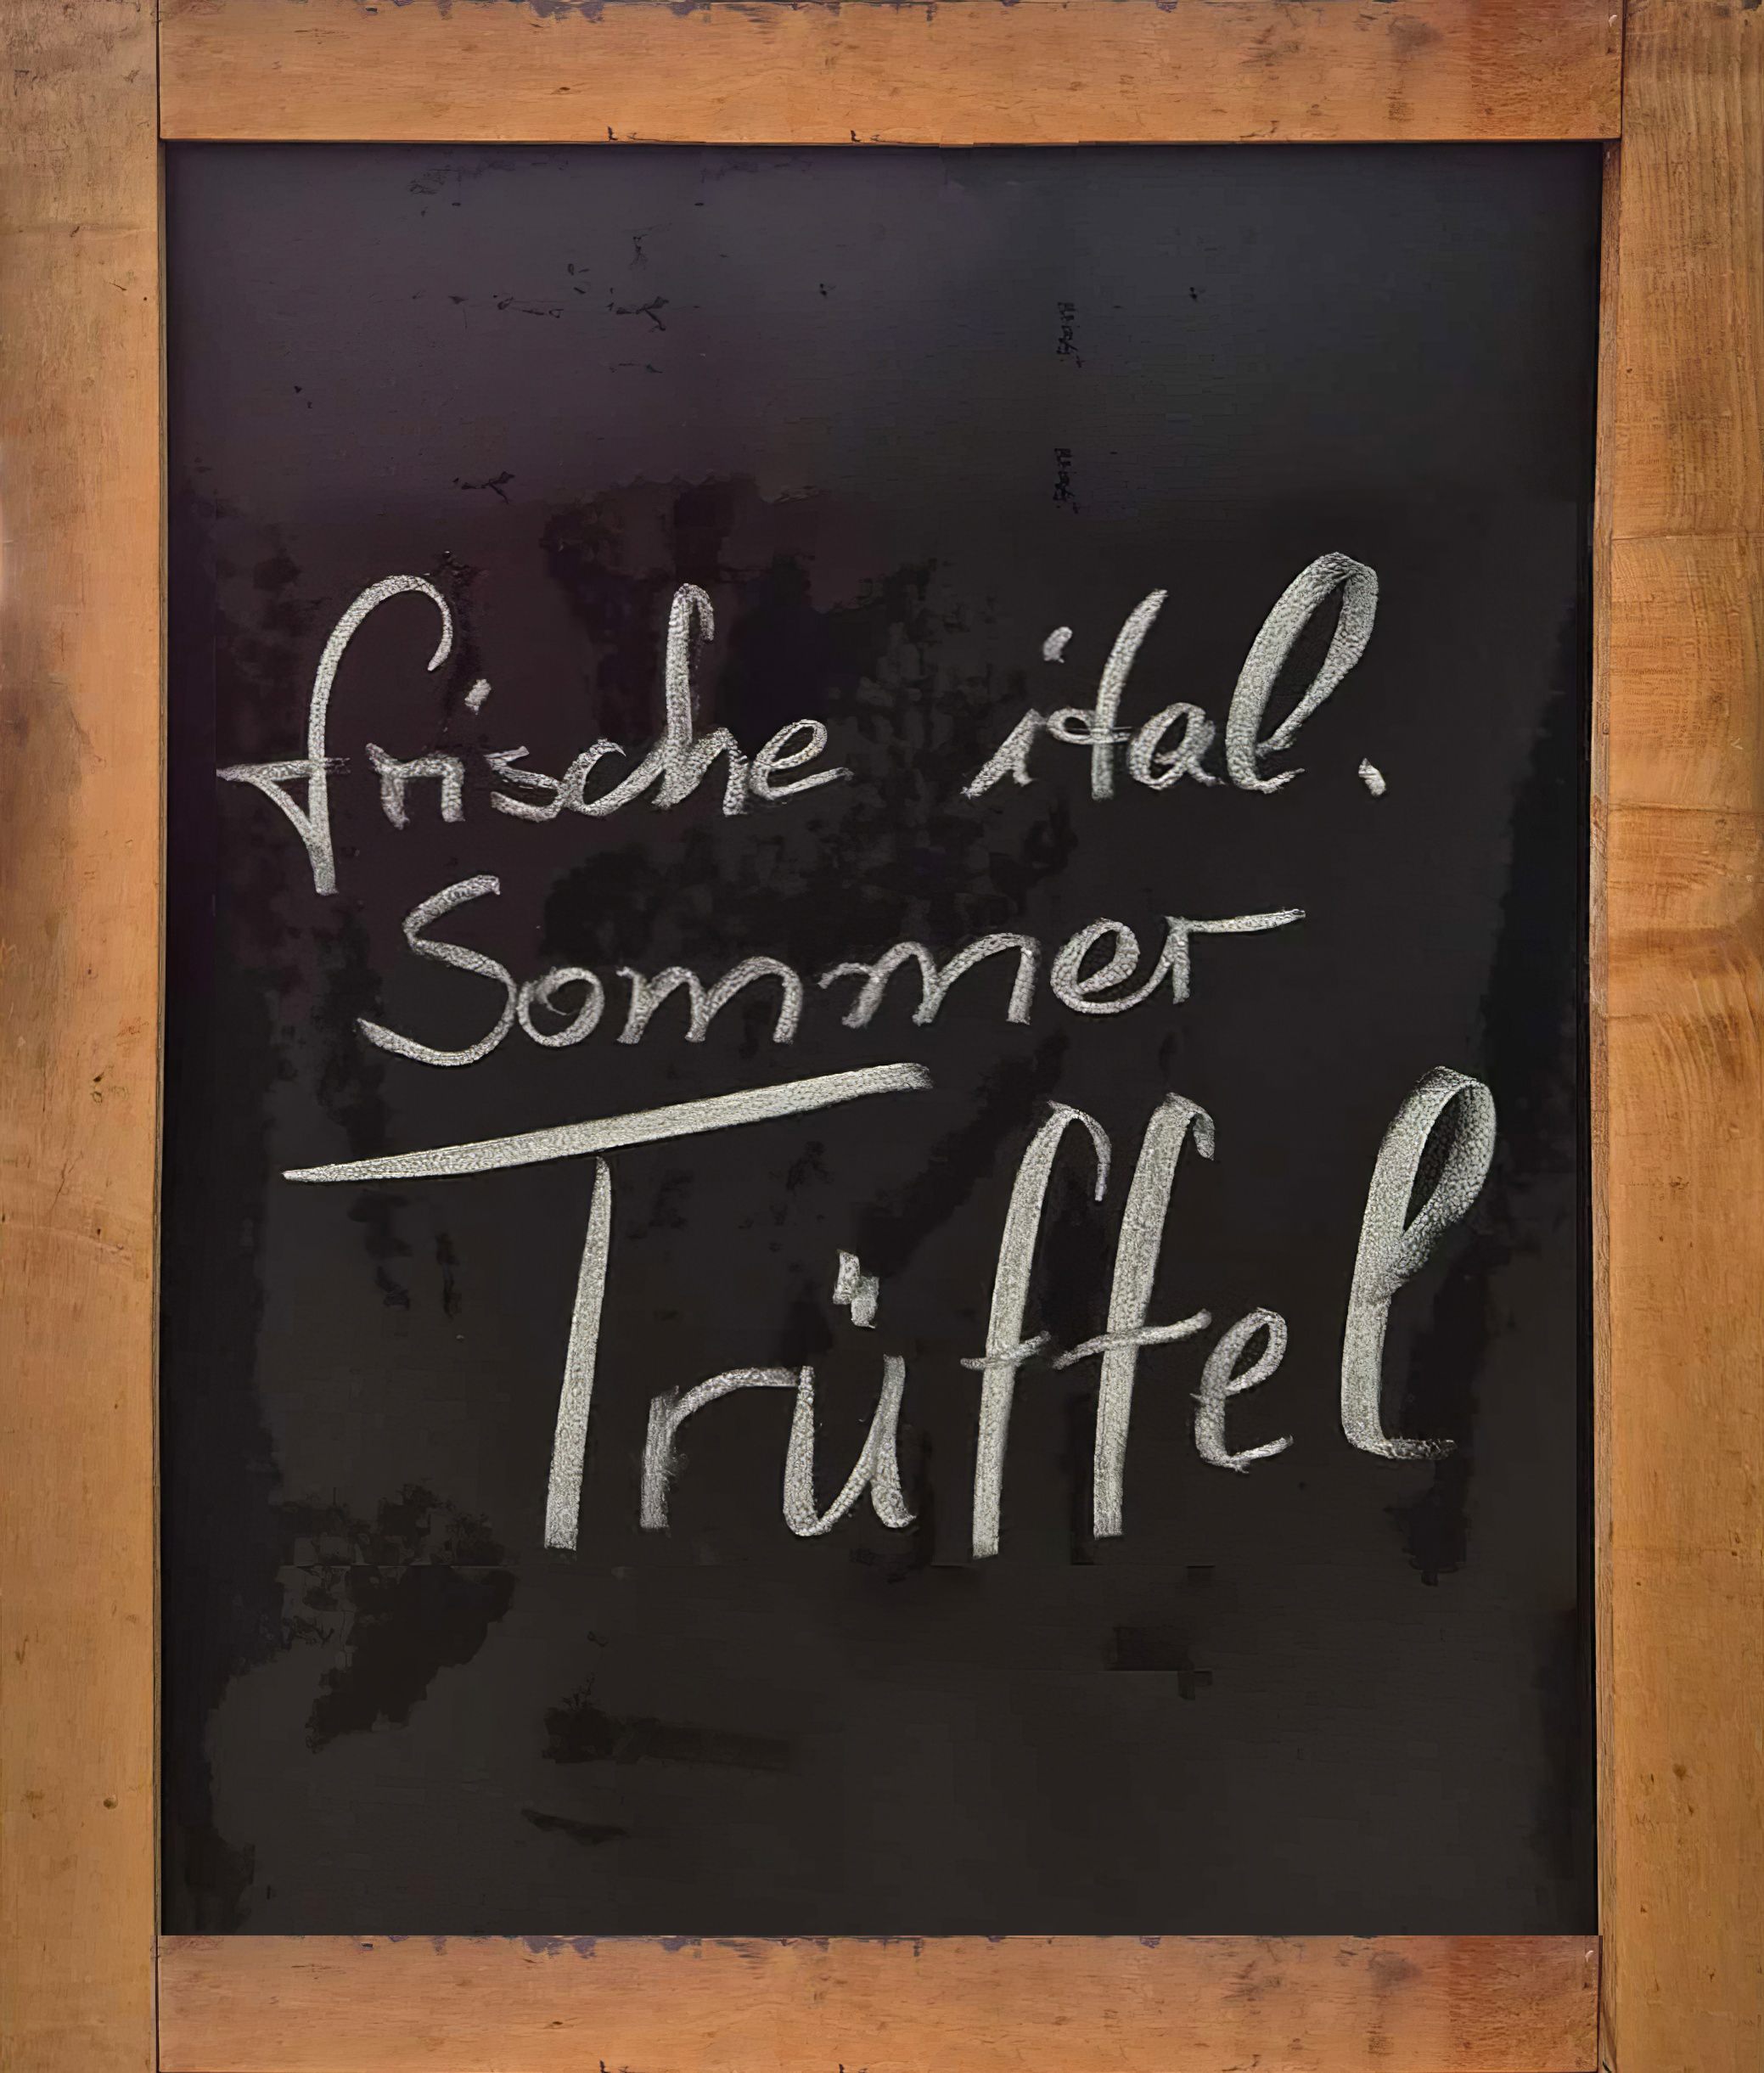 frische ital.
Sommer
Trüffel